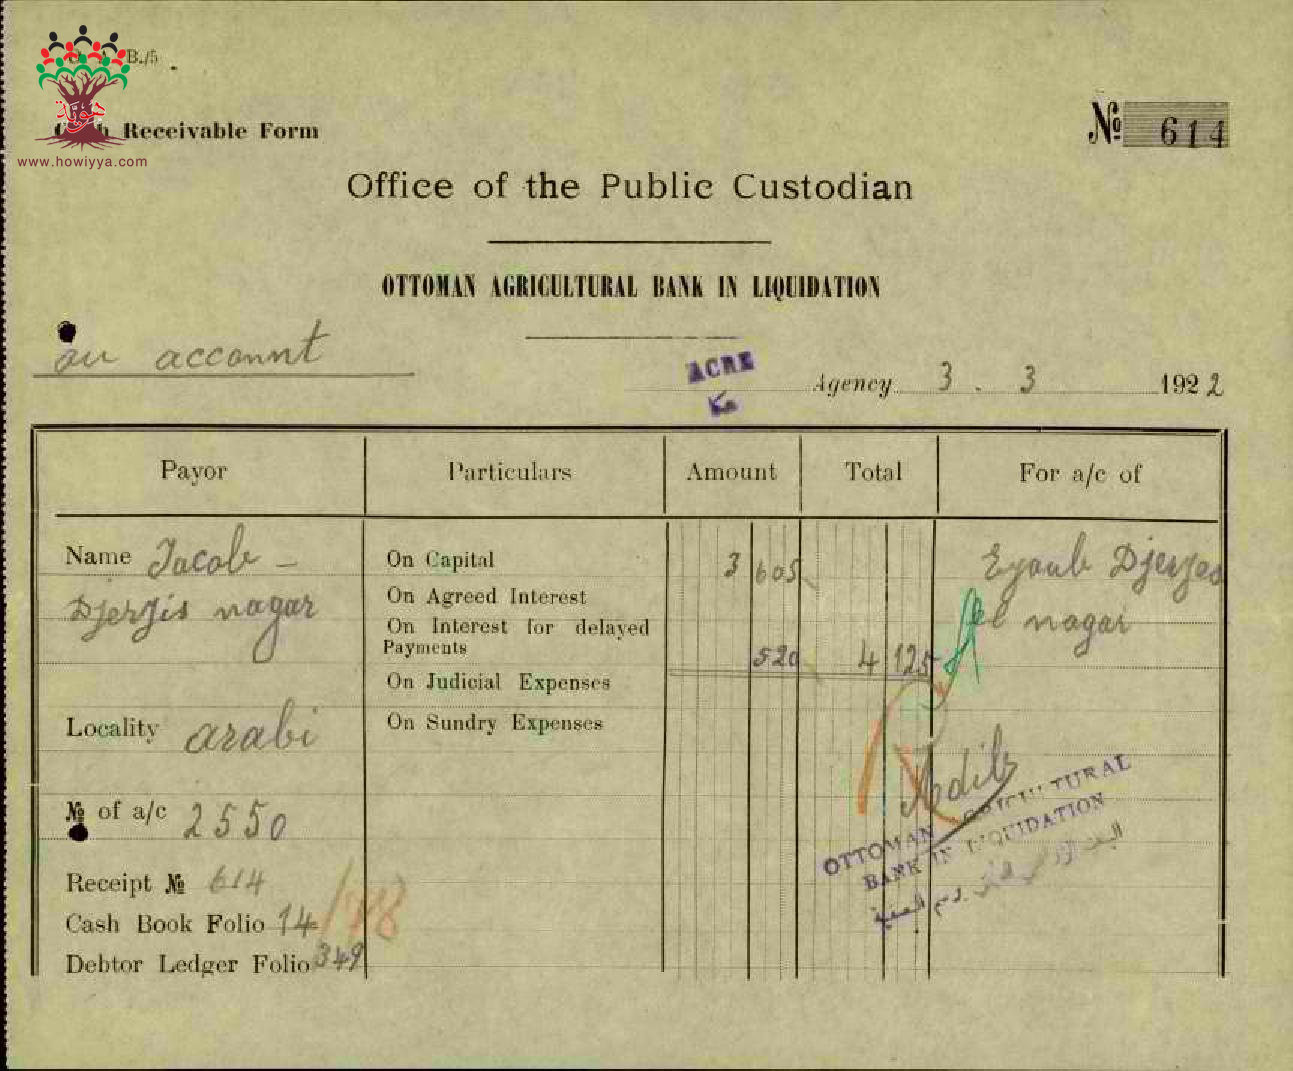 B./5
هوية
www.howiyya.com
Cash Receivable Form
№ 614
Office of the Public Custodian
OTTOMAN AGRICULTURAL BANK IN LIQUIDATION
on account
ACRE
Agency 3 . 3 1922
Payor
Particulars
Amount
Total
For a/c of
Name Jacob -
Djerjis nagar
On Capital
3 605
Eyoub Djerjes
el nagar
On Agreed Interest
On Interest for delayed
Payments
520
4 125
On Judicial Expenses
Locality arabi
On Sundry Expenses
Adib
№ of a/c 2550
OTTOMAN AGRICULTURAL
BANK IN LIQUIDATION
Receipt № 614
Cash Book Folio 14
178
Debtor Ledger Folio 349